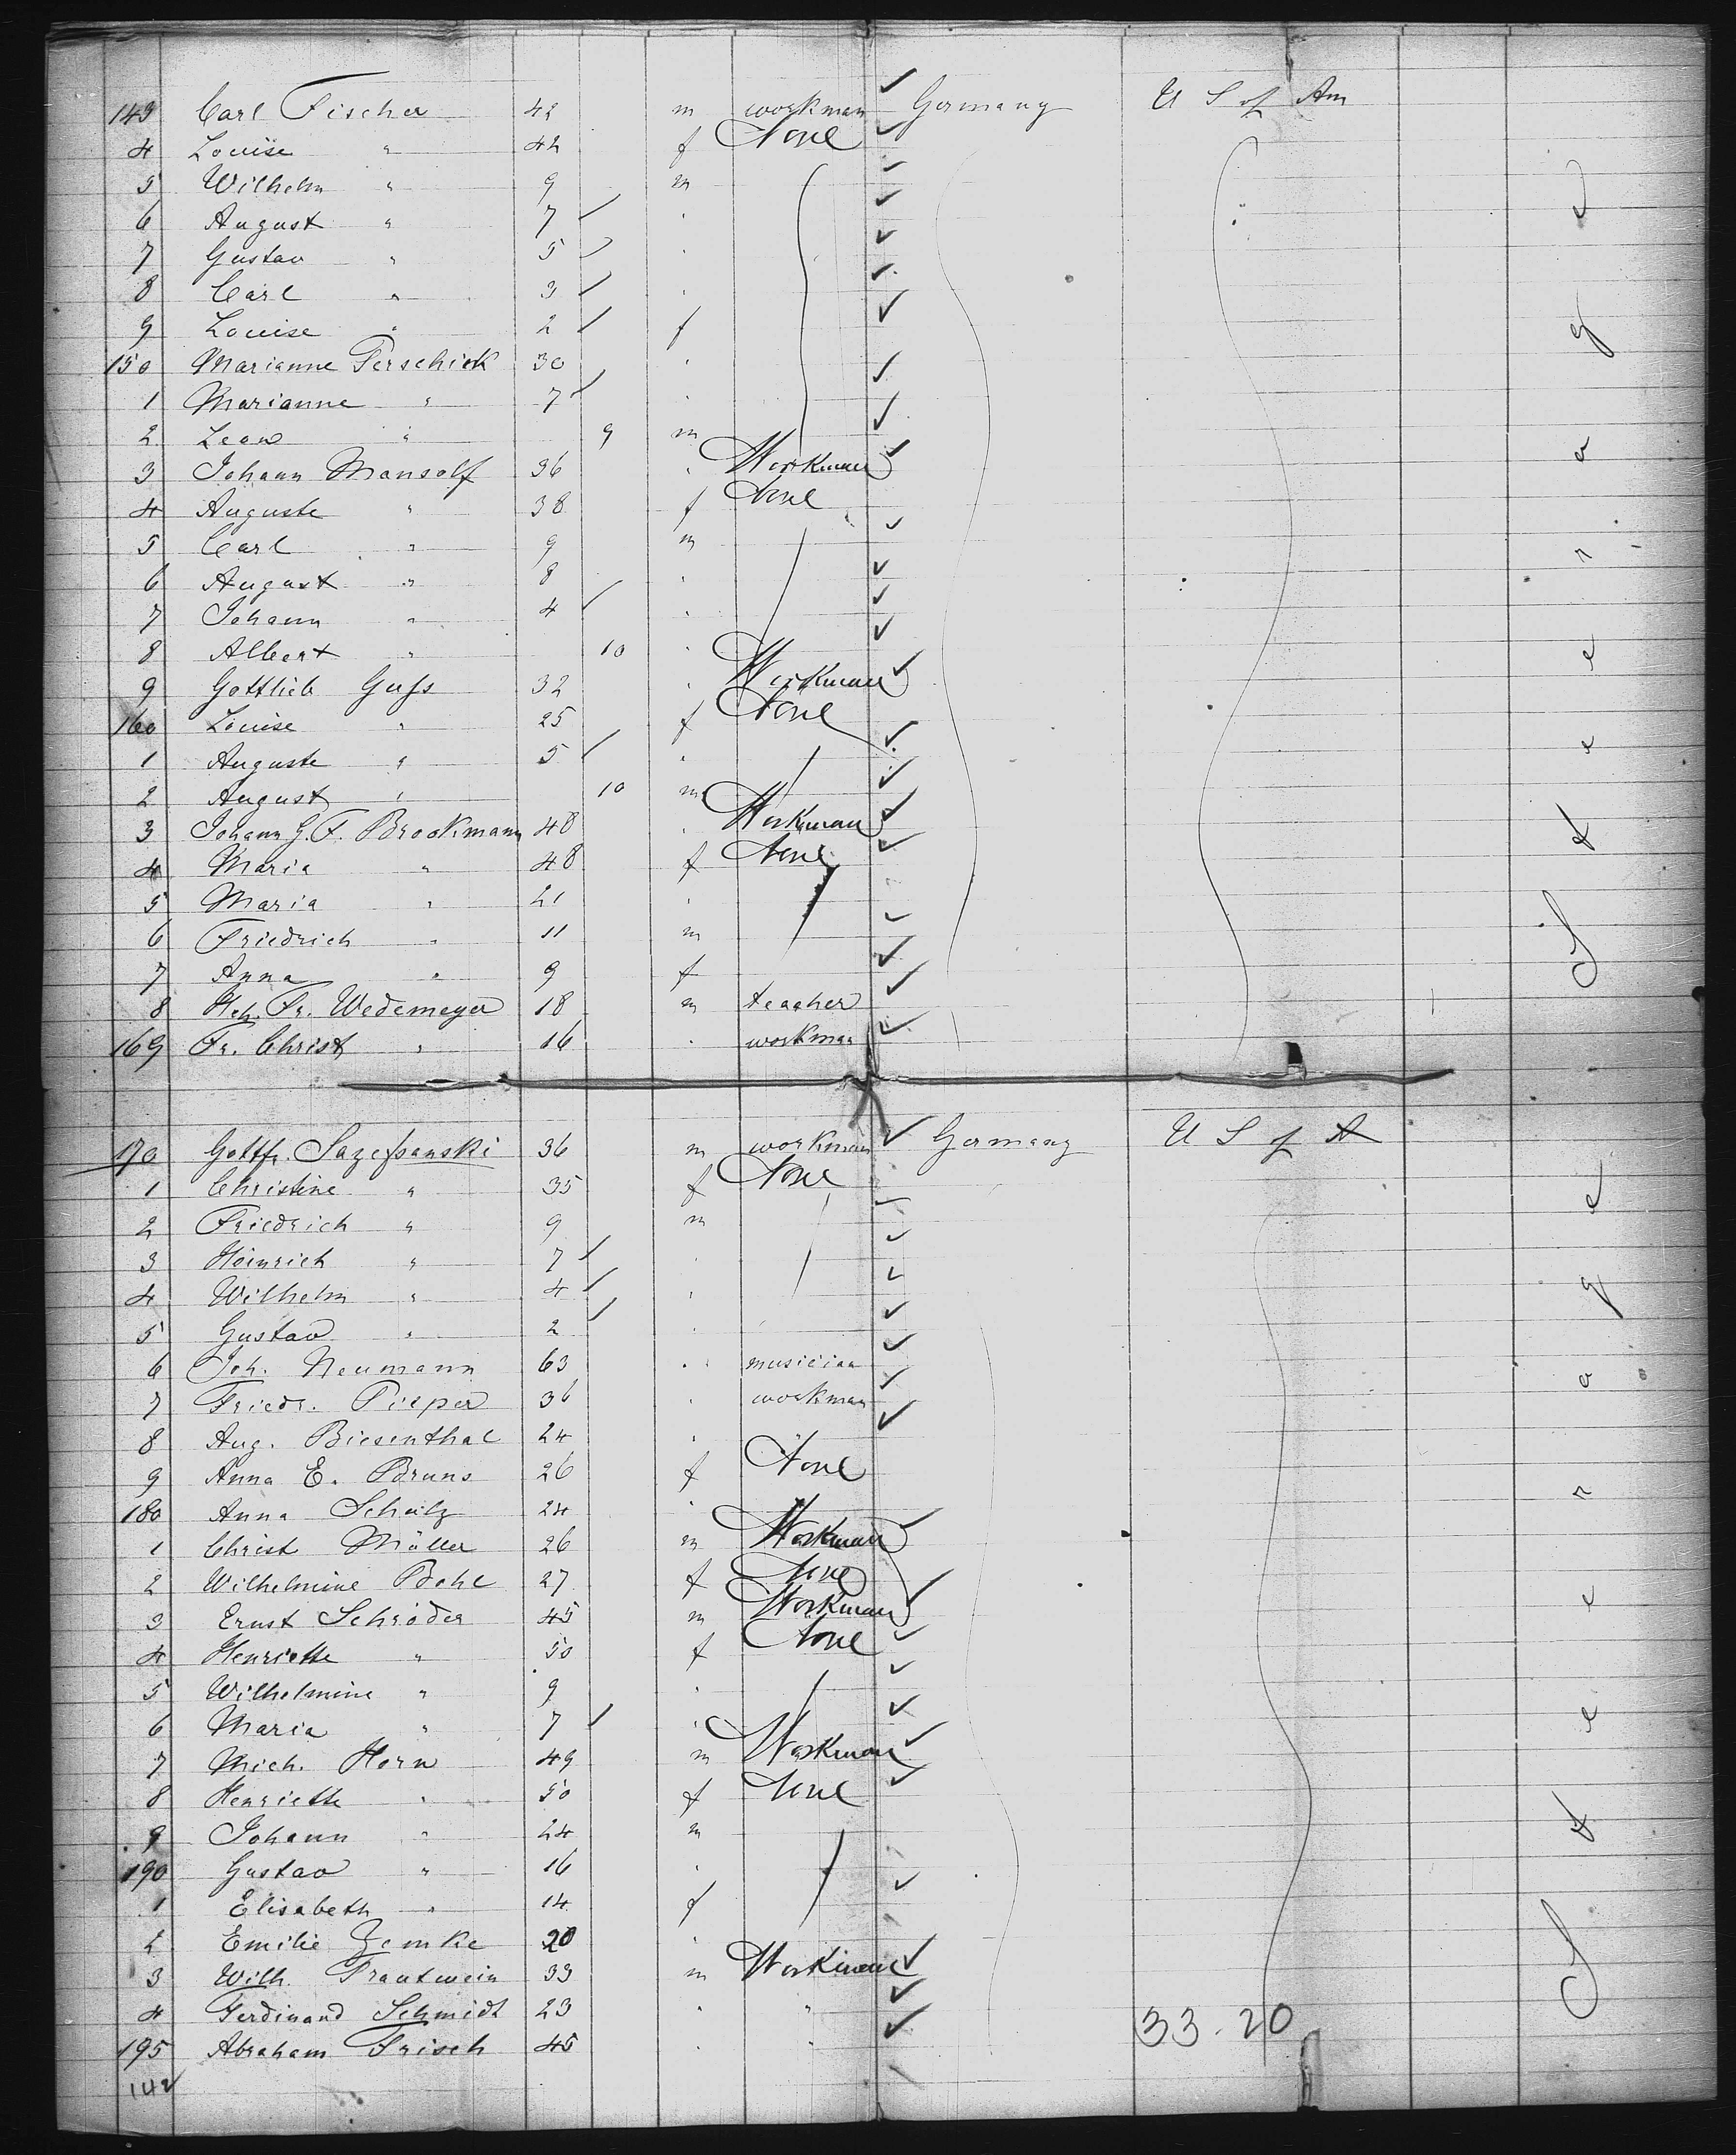 143 Carl Fischer 42 m workman Germany U S of Am
4 Louise " 42 f None
5 Wilhelm " 9 m
6 August " 7 "
7 Gustav " 5 "
8 Carl " 3 "
9 Louise " 2 f
150 Marianne Perschick 30 "
1 Marianne " 7 "
2 Leon " 9 m
3 Johann Mansolf 36 " Workman
4 Auguste " 38 f None
5 Carl " 9 m
6 August " 8 "
7 Johann " 4 "
8 Albert " 10 "
9 Gottlieb Guſs 32 " Workman
160 Louise " 25 f None
1 Auguste " 5 "
2 August " 10 m
3 Johann G. F. Brockmann 48 " Workman
4 Maria " 48 f None
5 Maria " 21 "
6 Friedrich " 11 m
7 Anna " 9 f
8 Hch. Fr. Wedemeyer 18 m teacher
169 Fr. Christ " 16 " workman
Steerage
170 Gottfr. Sazeſsanski 36 m workman Germany U S of A
1 Christine " 35 f None
2 Friedrich " 9 m
3 Heinrich " 7 "
4 Wilhelm " 4 "
5 Gustav " 2 "
6 Joh. Neumann 63 " musician
7 Friedr. Pieper 36 " workman
8 Aug. Biesenthal 24 " "
9 Anna E. Bruns 26 f None
180 Anna Schulz 24 "
1 Christ Müller 26 m Workman
2 Wilhelmine Bohl 27 f None
3 Ernst Schröder 45 m Workman
4 Henriette " 50 f None
5 Wilhelmine " 9 "
6 Maria " 7 "
7 Mich. Horn 49 m Workman
8 Henriette " 50 f None
9 Johann " 24 m
190 Gustav " 16 "
1 Elisabeth " 14 f
2 Emilie Zemke 20 "
3 Wilh. Trautwein 33 m Workman
4 Ferdinand Schmidt 23 " "
195 Abraham Frisch 45 " "
142
33.20
Steerage